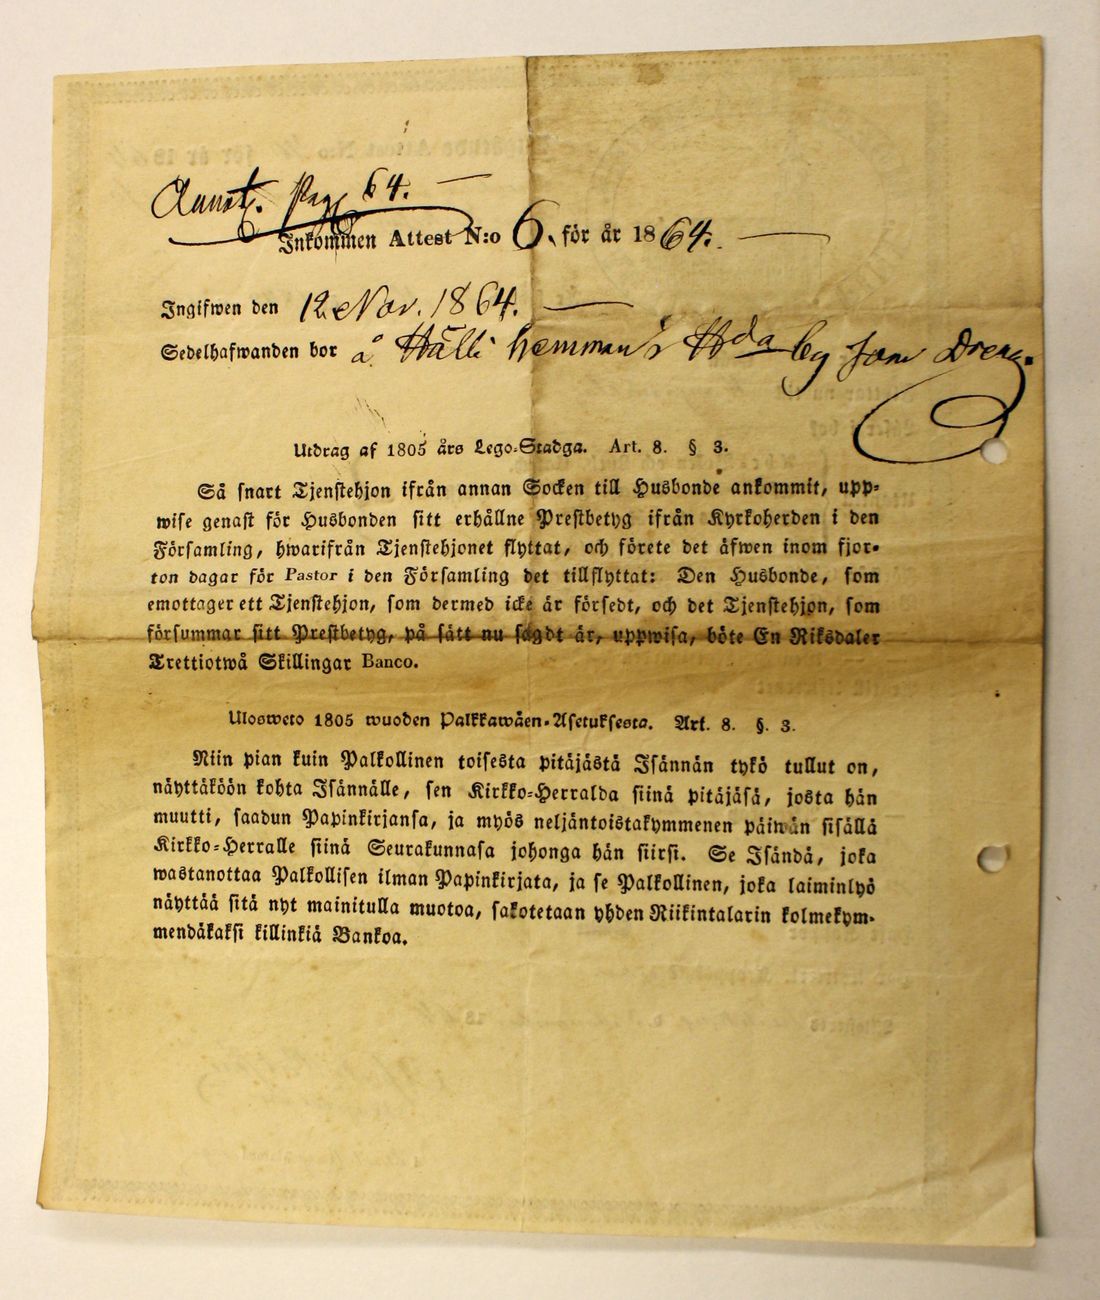 Annot. Pag 64. —
Inkommen Attest N:o 6. för år 1864. —
Ingifwen den 12 Nov. 1864. —
Sedelhafwanden bor å Hälli hemman i by som Dreng.
Utdrag af 1805 års Lego-Stadga. Art. 8. § 3.
Så snart Tjenstehjon ifrån annan Socken till Husbonde ankommit, upp-
wise genast för Husbonden sitt erhållne Prestbetyg ifrån Kyrkoherden i den
Församling, hwarifrån Tjenstehjonet flyttat, och förete det äfwen inom fjor-
ton dagar för Pastor i den Församling det tillflyttat: Den Husbonde, som
emottager ett Tjenstehjon, som dermed icke är försedt, och det Tjenstehjon, som
försummar sitt Prestbetyg, på sätt nu sagdt är, uppwisa, böte En Riksdaler
Trettiotwå Skillingar Banco.
Ulosweto 1805 wuoden Palkkawäen-Asetuksesta. Art. 8. §. 3.
Niin pian kuin Palkollinen toisesta pitäjästä Isännän tykö tullut on,
näyttäköön kohta Isännälle, sen Kirkko-Herralda siinä pitäjäsä, josta hän
muutti, saadun Papinkirjansa, ja myös neljäntoistakymmenen päiwän sisällä
Kirkko-Herralle siinä Seurakunnasa johonga hän siirsi. Se Isändä, joka
wastanottaa Palkollisen ilman Papinkirjata, ja se Palkollinen, joka laiminlyö
näyttää sitä nyt mainitulla muotoa, sakotetaan yhden Riikintalarin kolmekym-
mendäkaksi killinkiä Bankoa.